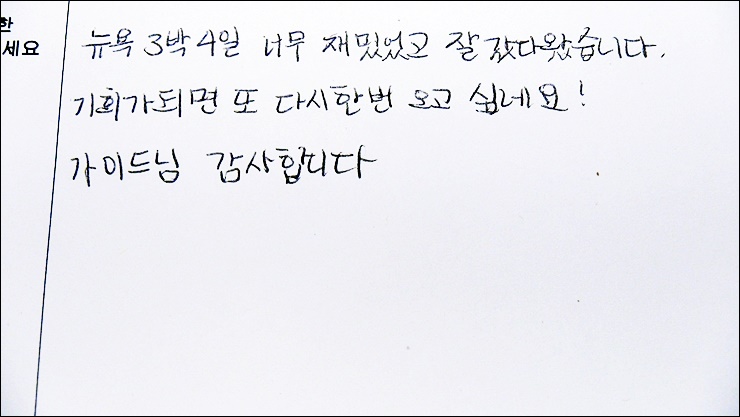 한
세요
뉴욕 3박4일 너무 재밌었고 잘갔다왔습니다.
기회가되면 또 다시한번 오고 싶네요!
가이드님 감사합니다